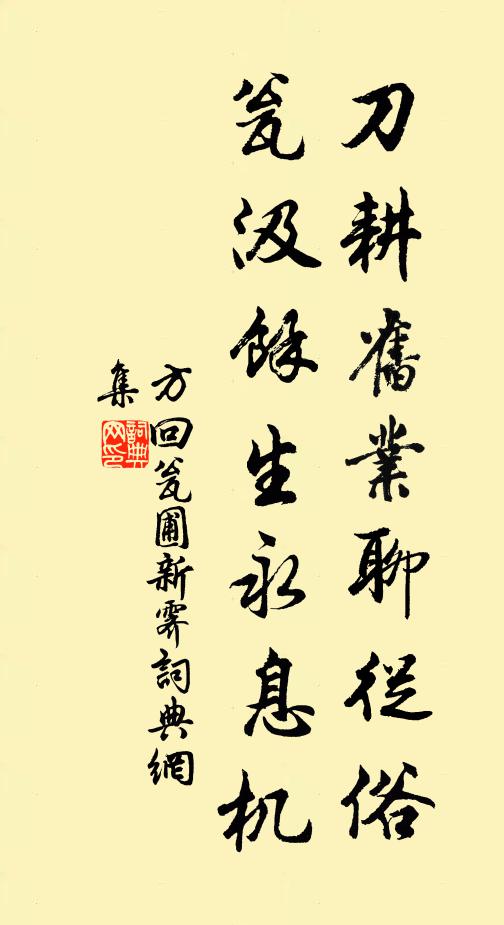 刀耕舊業聊從俗
瓮汲餘生永息机
方回瓮圃新霽詞典網
集
詞典网印